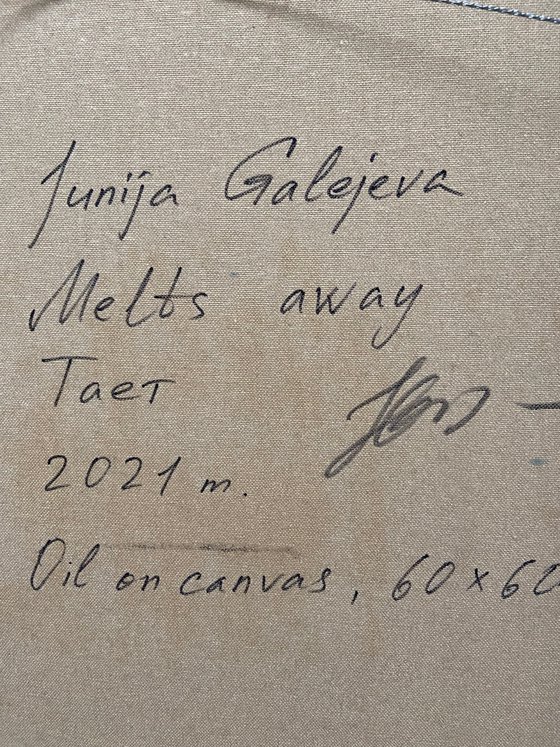 Junija Galejeva
Melts away
Тает
2021 m.
Oil on canvas, 60×60